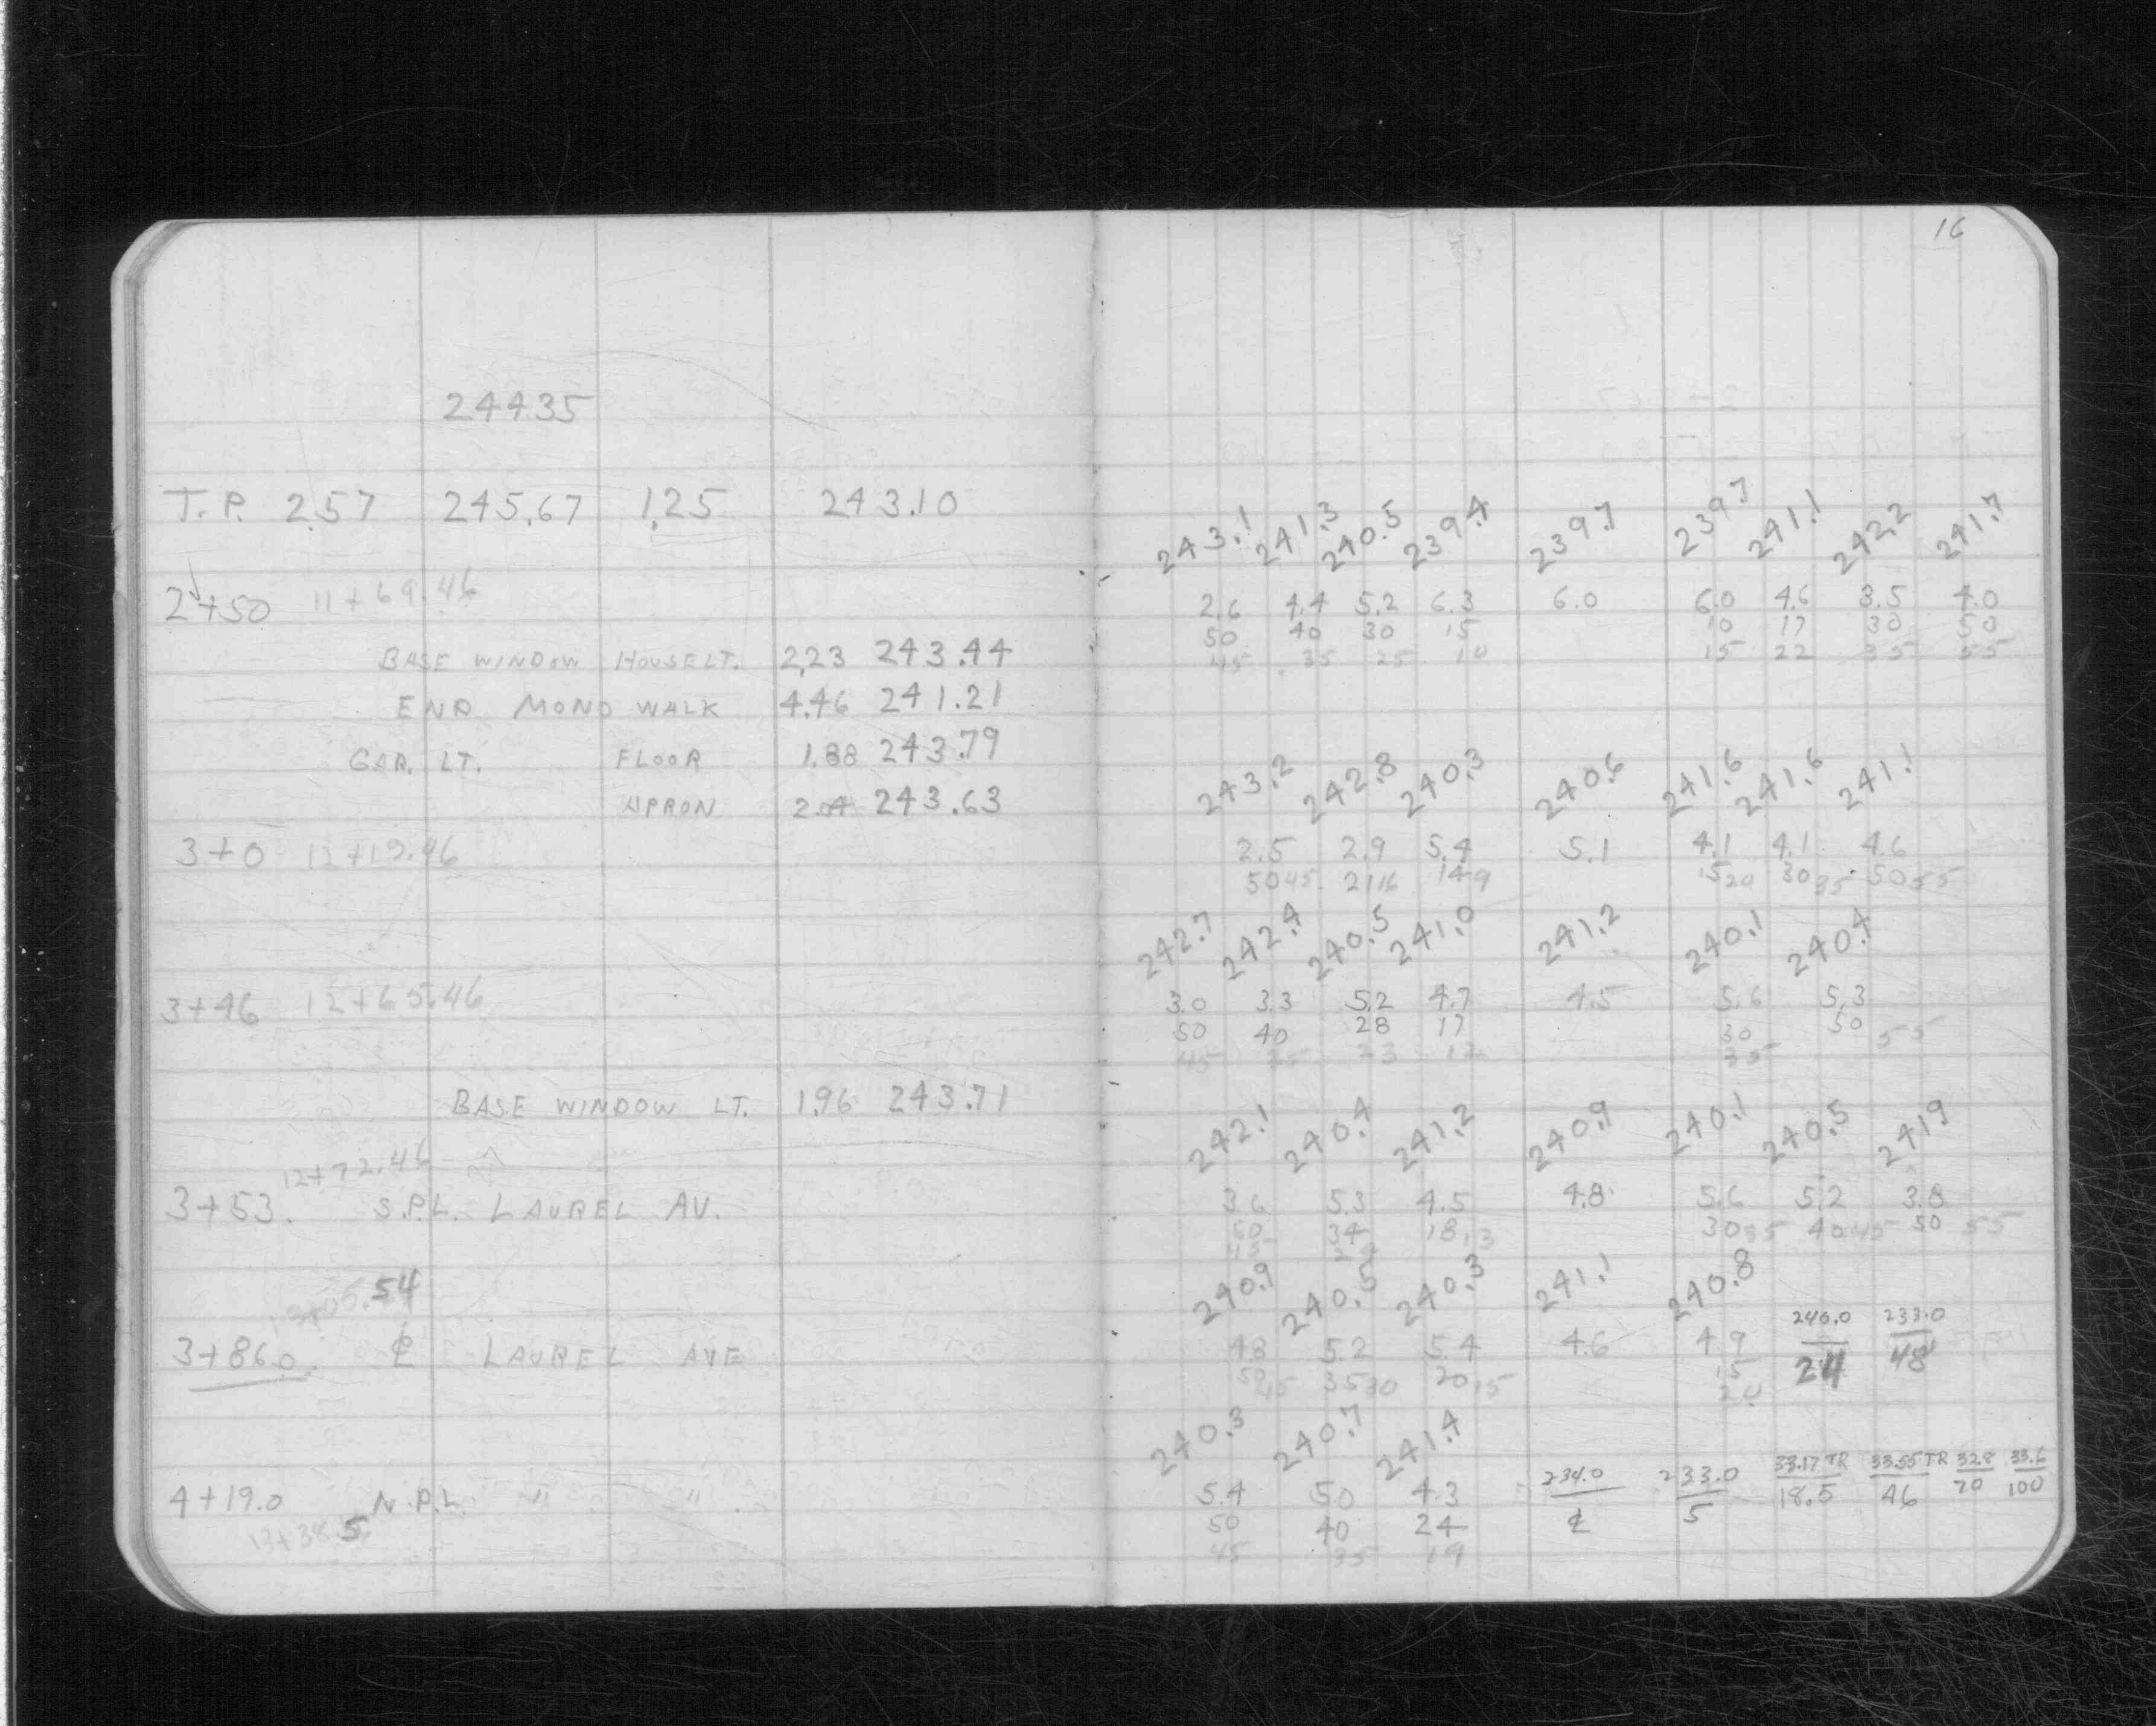 16
244.35
T.P. 2.57 245.67 1.25 243.10
243.1 241.3 240.5 239.4 239.7 239.7 241.1 242.2 241.7
2+50 11+69.46
2.6 4.4 5.2 6.3 6.0 6.0 4.6 3.5 4.0
50 40 30 15 10 17 30 50
45 35 25 10 15 22 35 55
BASE WINDOW HOUSE LT. 2.23 243.44
END MONO WALK 4.46 241.21
GAR. LT. FLOOR 1.88 243.79
APRON 2.04 243.63
243.2 242.8 240.3 240.6 241.6 241.6 241.1
3+0 12+19.46
2.5 2.9 5.4 5.1 4.1 4.1 4.6
50 45 21 16 14 9 15 20 30 35 50 55
242.7 242.4 240.5 241.0 241.2 240.1 240.4
3+46 12+65.46
3.0 3.3 5.2 4.7 4.5 5.6 5.3
50 40 28 17 30 50 55
45 35 23 12 35
BASE WINDOW LT. 1.96 243.71
242.1 240.4 241.2 240.9 240.1 240.5 241.9
12+72.46
3+53. S.P.L. LAUREL AV.
3.6 5.3 4.5 4.8 5.6 5.2 3.8
50 34 18 13 30 35 40 45 50 55
45 29
240.9 240.5 240.3 241.1 240.8
13+05.54
3+86.0 ℄ LAUREL AVE
4.8 5.2 5.4 4.6 4.9 240.0 233.0
50 45 35 30 20 15 15 24 48
20
240.3 240.7 241.4
4+19.0 N.P.L. " "
13+38.5
5.4 5.0 4.3 234.0 233.0 33.17 TR 33.55 TR 32.8 33.6
50 40 24 ℄ 5 18.5 46 70 100
45 35 19